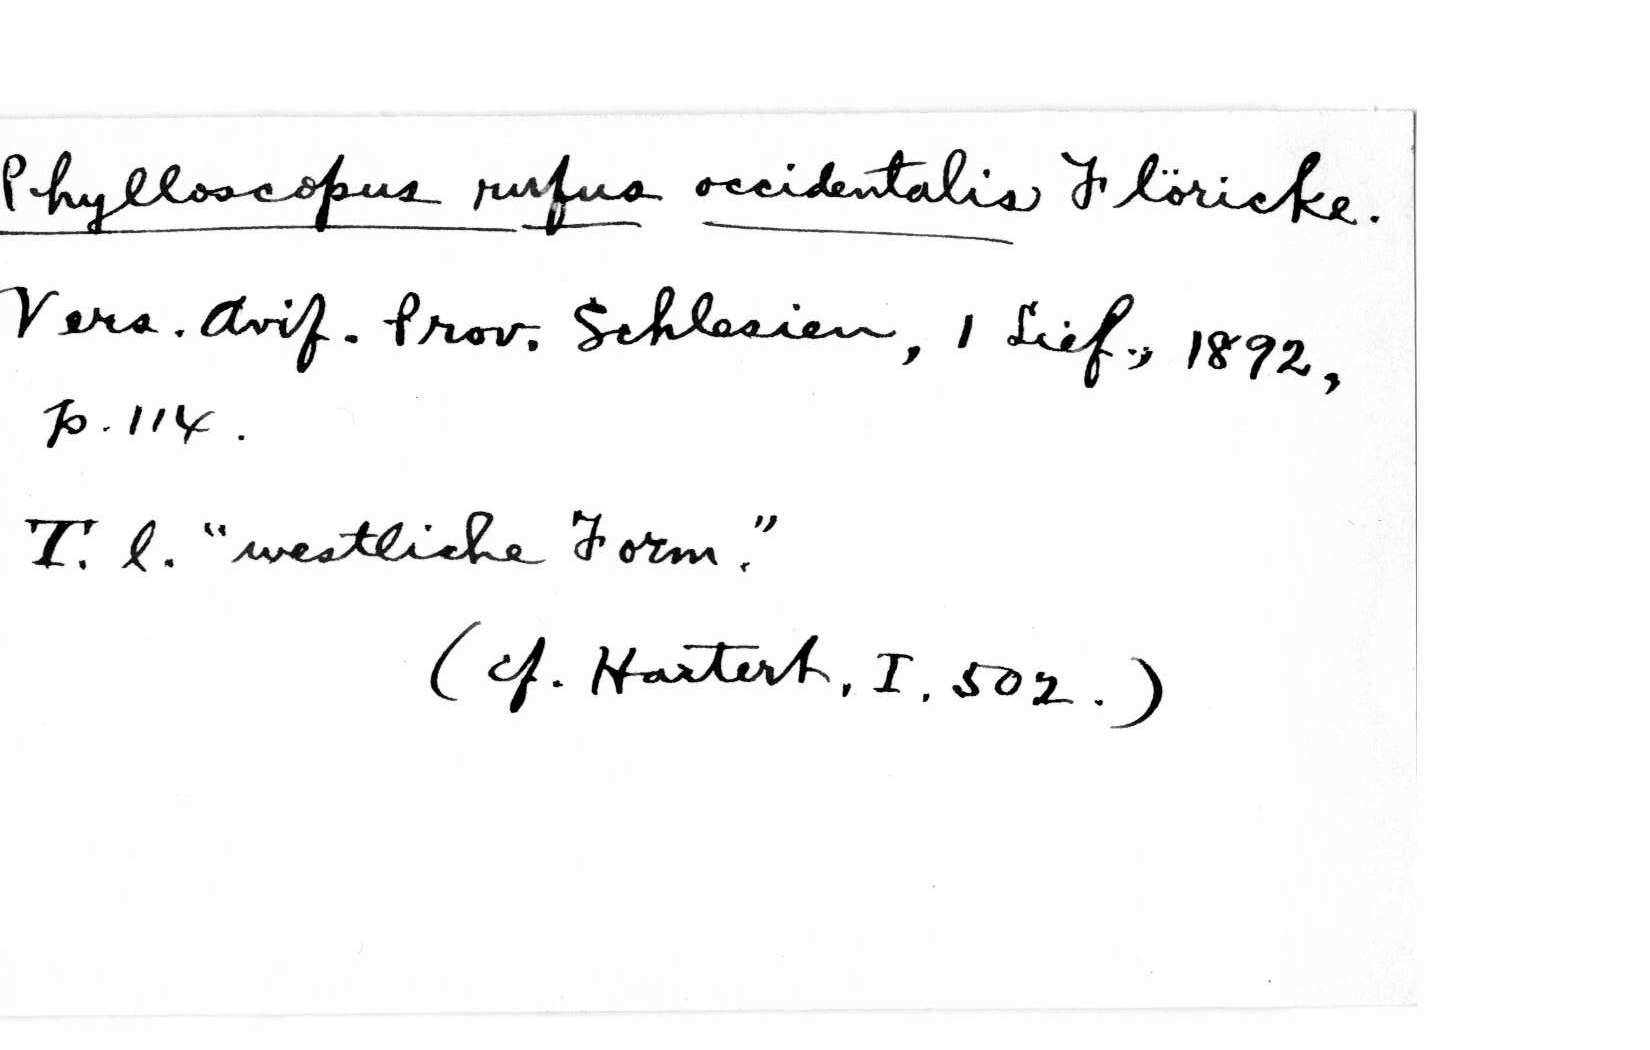 Phylloscopus rufus occidentalis Flöricke.
Vers. Avif. Prov. Schlesien, 1 Lief., 1892,
p. 114.
T. l. "westliche Form."
(cf. Hartert, I, 502.)